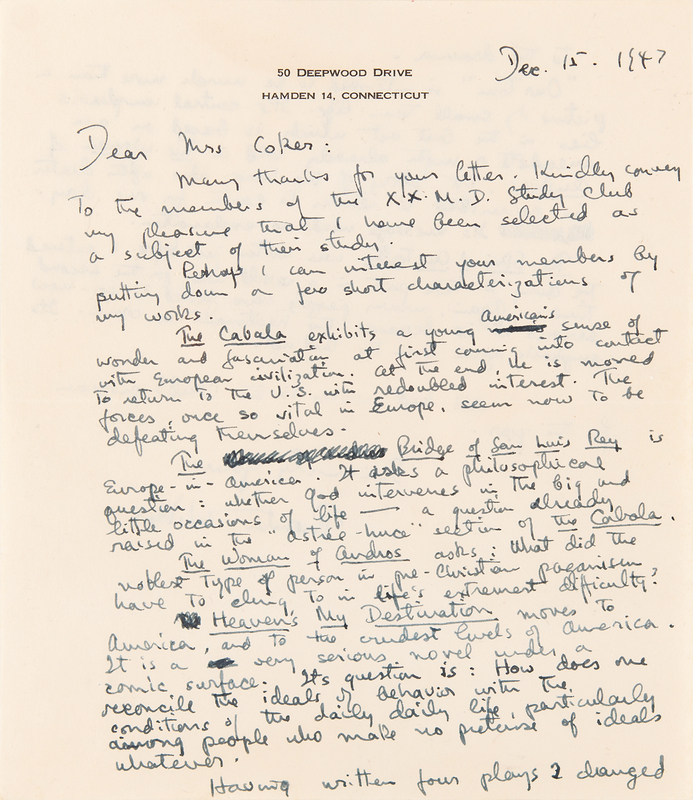 50 DEEPWOOD DRIVE
HAMDEN 14, CONNECTICUT
Dec. 15. 1947
Dear Mrs Coker:
Many thanks for your letter. Kindly convey
To the members of the X.X.M.D. Study Club
my pleasure that I have been selected as
a subject of their study.
Perhaps I can interest your members by
putting down a few short characterizations of
my works.
American's
The Cabala exhibits a young sense of
wonder and fascination at first coming into contact
with European civilization. At the end, he is moved
To return to the U.S. with redoubled interest. The
forces, once so vital in Europe, seem now to be
defeating themselves.
The Bridge of San Luis Rey is
Europe-in-America. It asks a philosophical
question: whether God intervenes in the big and
little occasions of life — a question already
raised in the "Astrée-Luce" section of the Cabala.
The Woman of Andros asks: What did the
noblest type of person in pre-Christian paganism
have to cling to in life's extremest difficulty?
Heaven's My Destination moves to
America, and to the crudest levels of America.
It is a very serious novel under a
comic surface. It's question is: How does one
reconcile the ideals of behavior with the
conditions of the daily daily life, particularly
among people who make no pretense of ideals
whatever.
Having written four plays I changed